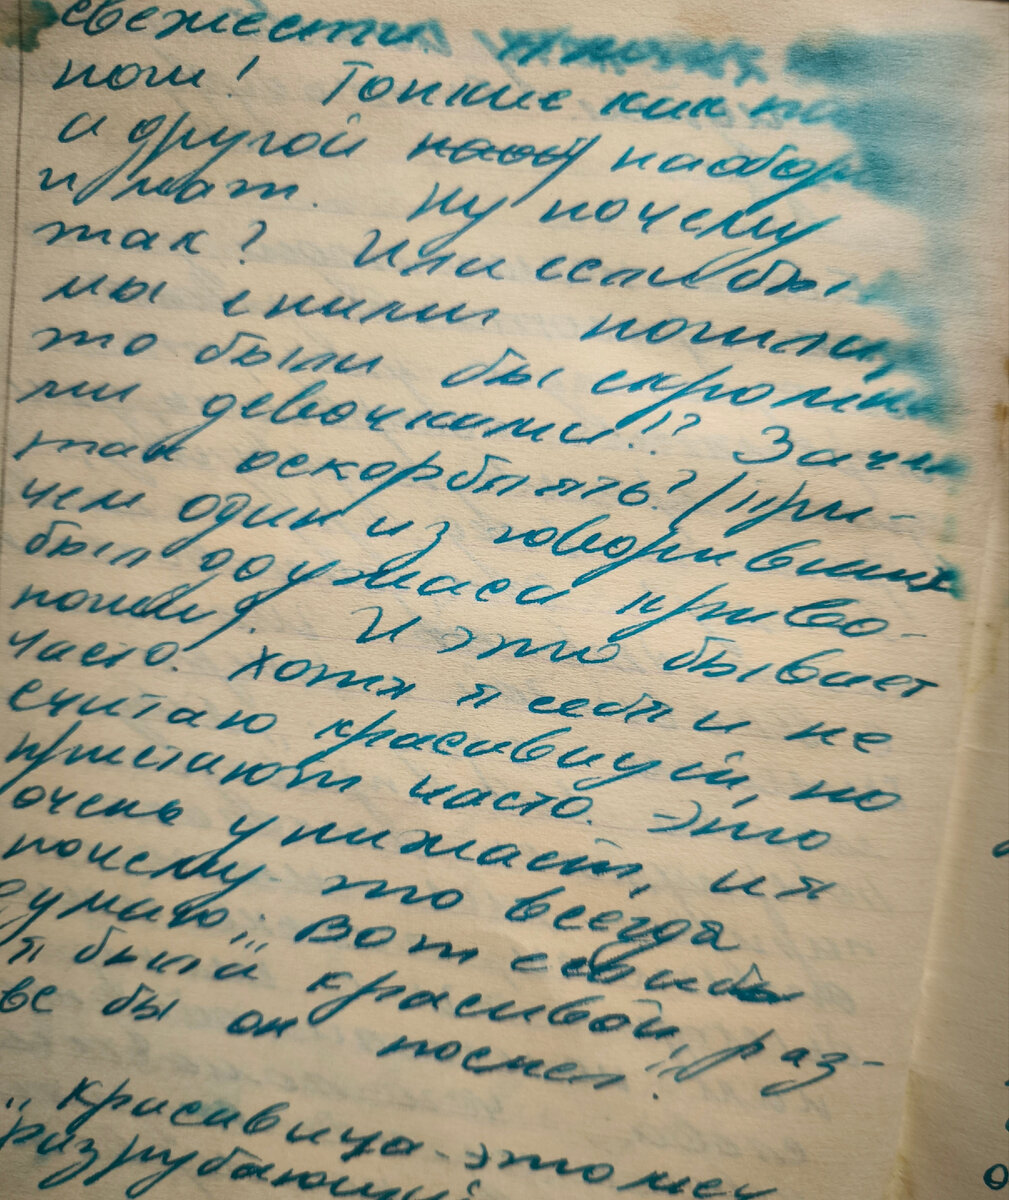 свежести
ноги! Тонкие как
и другой наобор
и мат. Ну почему
так? Или если бы
мы с ними пошли,
то были бы скромны
ми девочками!? Зачем
так оскорблять? (При-
чем один из говоривших
был до ужаса криво-
ногим). И это бывает
часто. Хотя я себя и не
считаю красавицей, но
пристают часто. Это
очень унижает, и я
почему-то всегда
думаю: „Вот если бы
я была красивой, раз-
ве бы он посмел?"
„Красавица - это меч
разрубающий